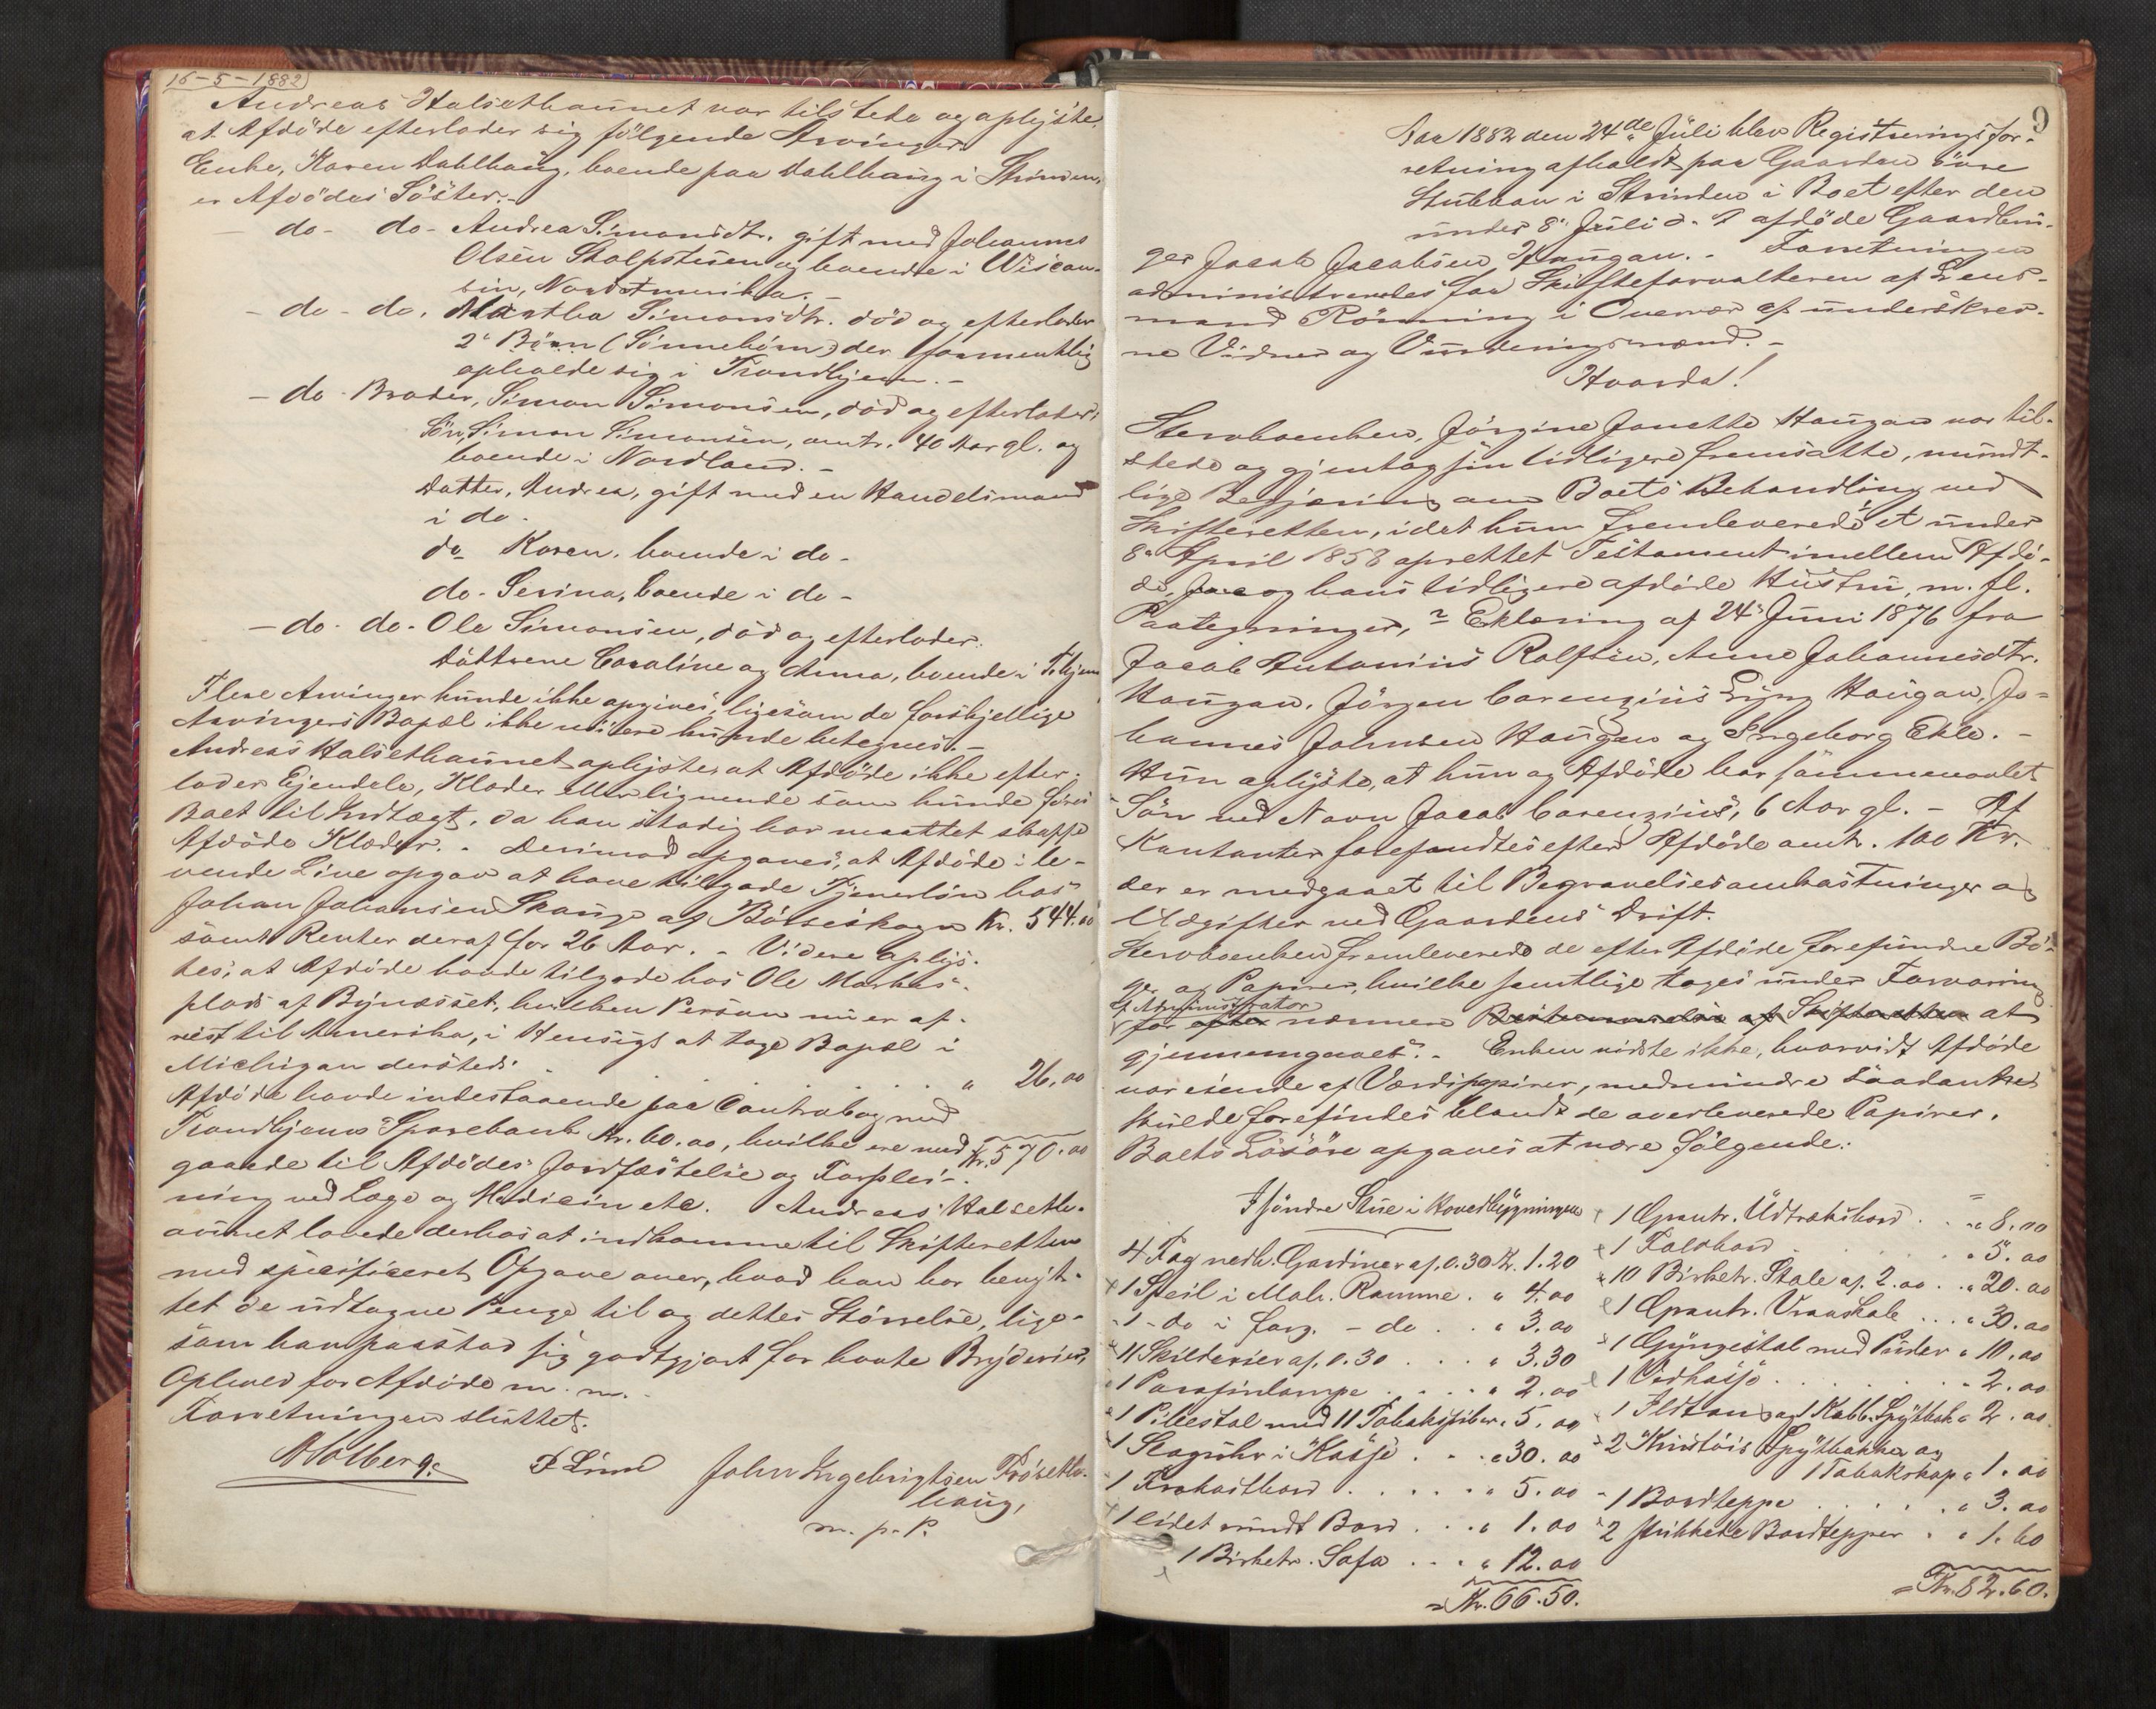 16-5-1882
Andreas Halsethaunet var tilstede og oplyste,
at Afdöde efterlader sig fölgende Arvinger:
Enke, Karen Dahlhaug, boende paa Dahlhaug i Strinden,
er Afdödes Söster.-
- do - do - Andrea Simonsdtr. gift med Johannes
Olsen Stolpstuen og boende i Wiscon-
sin, Nordamerika.-
- do - do. Martha Simonsdtr. död og efterlader
2 Börn (Sönnebörn) der formentlig
opholde sig i Trondhjem.-
- do - Broder, Simon Simonsen, död og efterlader
Sön, Simon Simonsen, omtr. 40 Aar gl. og
boende i Nordland.-
Datter, Andrea, gift med en Handelsmand
i do.
do Karen, boende i do -
do - Serina, boende i do -
- do - do - Ole Simonsen, död og efterlader:
Döttrene Caroline og Anna, boende i Tr.hjem
Flere Arvinger kunde ikke opgives, ligesom de forskjellige
Arvingers Bopæl ikke nöiere kunde betegnes.-
Andreas Halsethaunet oplyste, at Afdöde ikke efter-
lader Ejendele, Klæder eller lignende som kunde föres
Boet til Indtægt, da han stadig har maattet skaffe
Afdöde Klæder. - Derimod opgaves, at Afdöde i le-
vende Live opgav at have tilgode Tjenerlön hos
Johan Johansen Skauge af Börseskogn Kr. 544.00
samt Renter deraf for 26 Aar. - Videre oplys-
tes, at Afdöde havde tilgode hos Ole Markus-
plads af Bynæsset, hvilken Person nu er af-
reist til Amerika, i Hensigt at tage Bopæl i
Michigan dersteds. . . . . . . . " 26.00
Afdöde havde indestaaende paa Contrabog med
Trondhjems Sparebank Kr. 60.00, hvilke ere med- Kr. 570.00
gaaede til Afdödes Jordfæstelse og Forplei-
ning ved Læge og Medicin etc. Andreas Halseth-
aunet lovede derhos at indkomme til Skifteretten
med specificeret Opgave over, hvad han har benyt-
tet de udtagne Penge til og dettes Störrelse, lige-
som han paastod sig godtgjort for havte Bryderier,
Ophold for Afdöde m. m.-
Forretningen sluttet.
A Kolberg. P Lund John Ingebrigtsen Fröseth-
haug,
m. p. P.
9
Aar 1882 den 24de Juli blev Registreringsfor-
retning afholdt paa Gaarden övre
Stubban i Strinden i Boet efter den
under 8de Juli d. A. afdöde Gaardbru-
ger Jacob Jacobsen Haugan. - Forretningen
administreredes for Skifteforvalteren af Lens-
mand Rönning i Overvær af underskrev-
ne Vidner og Vurderingsmænd. -
Hvorda!
Stervboenken, Jörgine Jonette Haugan var til-
stede og gjentog sin tidligere fremsatte, mundt-
lige Begjæring om Boets Behandling ved
Skifteretten, idet hun fremleverede 1 et under
8de April 1858 oprettet Testament imellem Afdö-
de, og hans tidligere afdöde Hustru, m. fl.
Paategninger, 2 Erklæring af 24de Juni 1876 fra
Jacob Antonius Rolfsen, Anne Johannesdtr.
Haugan, Jörgen Corenzius Lyng Haugan, Jo-
hannes Johnsen Haugen og Ingeborg Ekle. -
Hun oplyste, at hun og Afdöde har sammenavlet
Sön ved Navn Jacob Corenzius, 6 Aar gl. - Af
Kontanter forefandtes efter Afdöde omtr. 100 Kr.
der er medgaaet til Begravelsesomkostninger og
Udgifter ved Gaardens Drift.
Stervboenken fremleverede de efter Afdöde forefundne Bö-
ger og Papirer, hvilke samtlige toges under Forvaring
af Administrator
for efter nærmere Bestemmelse af Skifteretten at
gjennemgaaes. - Enken vidste ikke, hvorvidt Afdöde
var eiende af Værdipapirer, medmindre saadanne
skulde forefindes blandt de overleverede Papirer.
Boets Lösöre opgaves at være fölgende:
I söndre Stue i Hovedbygningen
4 Fag nedh. Gardiner af 0.30 Kr. 1.20
1 Speil i Mah. Ramme . " 4.00
1 - do i farg. - do . . " 3.00
11 Skilderier af 0.30 . . . " 3.30
1 Parafinlampe . . . . " 2.00
1 Pibestol med 11 Tobakspiber " 5.00
1 Slaguhr i Kasse . . . " 30.00
1 Frokostbord . . . . . " 5.00
1 lidet rundt Bord . . . " 1.00
1 Birketr. Sofa . . . " 12.00
= Kr. 66.50.
1 Orantr. Udtræksbord . . " 8.00
1 Foldbord . . . . . . " 5.00
10 Birketr. Stole af 2.00 . . " 20.00
1 Orantr. Vraaskab . . . " 30.00
1 Gyngestol med Puder " 10.00
1 Vedkasse . . . . . . " 2.00
1 Ildtang og 1 Kobb. Spytbak " 2.00
2 Spytbakker og
1 Tobakskop " 1.00
1 Bordteppe . . . . . " 3.00
2 strikkede Bordtepper . . " 1.60
= Kr. 82.60.